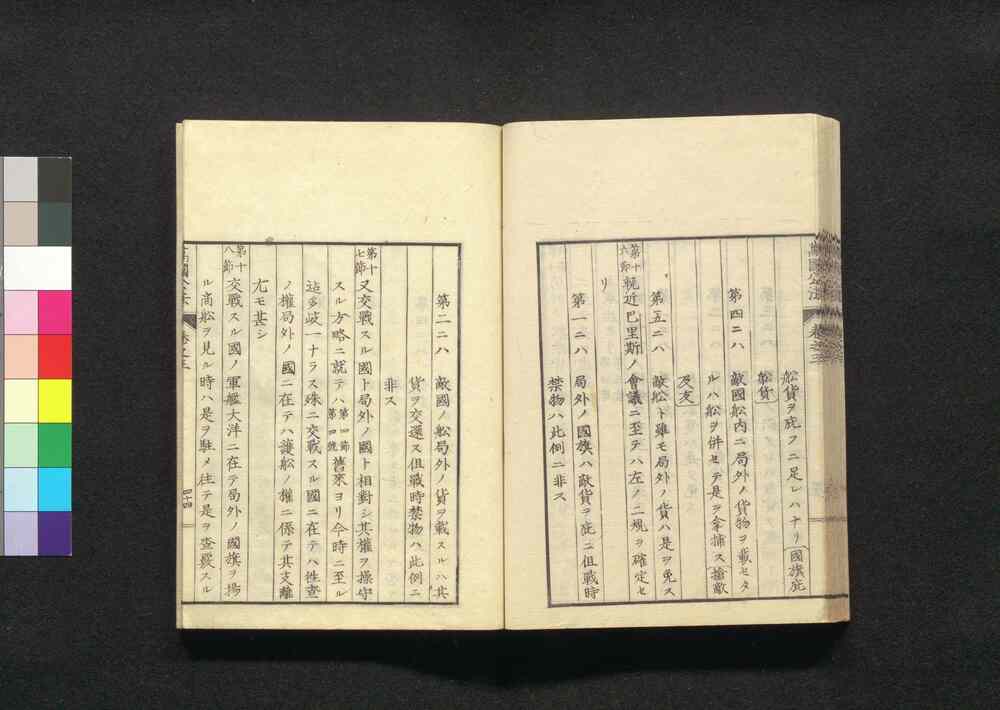 舩貨ヲ庇フニ足レハナリ 國旗庇
舩貨
第四ニハ 敵國舩内ニ局外ノ貨物ヲ載セタ
ルハ舩ヲ併セテ是ヲ拿捕ス 搶敵
及友
第五ニハ 敵舩ト雖モ局外ノ貨ハ是ヲ免ス
第十六節 輓近巴里斯ノ會議ニ至テハ左ノ二規ヲ確定セ
リ
第一ニハ 局外ノ國旗ハ敵貨ヲ庇ニ但戰時
禁物ハ此例ニ非ス
萬國公法 卷之三
第二ニハ 敵國ノ舩局外ノ貨ヲ載スルハ其
貨ヲ交還ス但戰時禁物ハ此例ニ
非ス
第十七節 又交戰スル國ト局外ノ國ト相對シ其權ヲ操守
スル方略ニ就テハ 第四節第四號 舊來ヨリ今時ニ至ル
迠多岐一ナラス殊ニ交戰スル國ニ在テハ徃査
ノ權局外ノ國ニ在テハ護舩ノ權ニ係テ其支離
尤モ甚シ
第十八節 交戰スル國ノ軍艦大洋ニ在テ局外ノ國旗ヲ揚
ル商舩ヲ見ル時ハ是ヲ駐メ往テ是ヲ査覈スル
萬國公法 卷之三 四十四